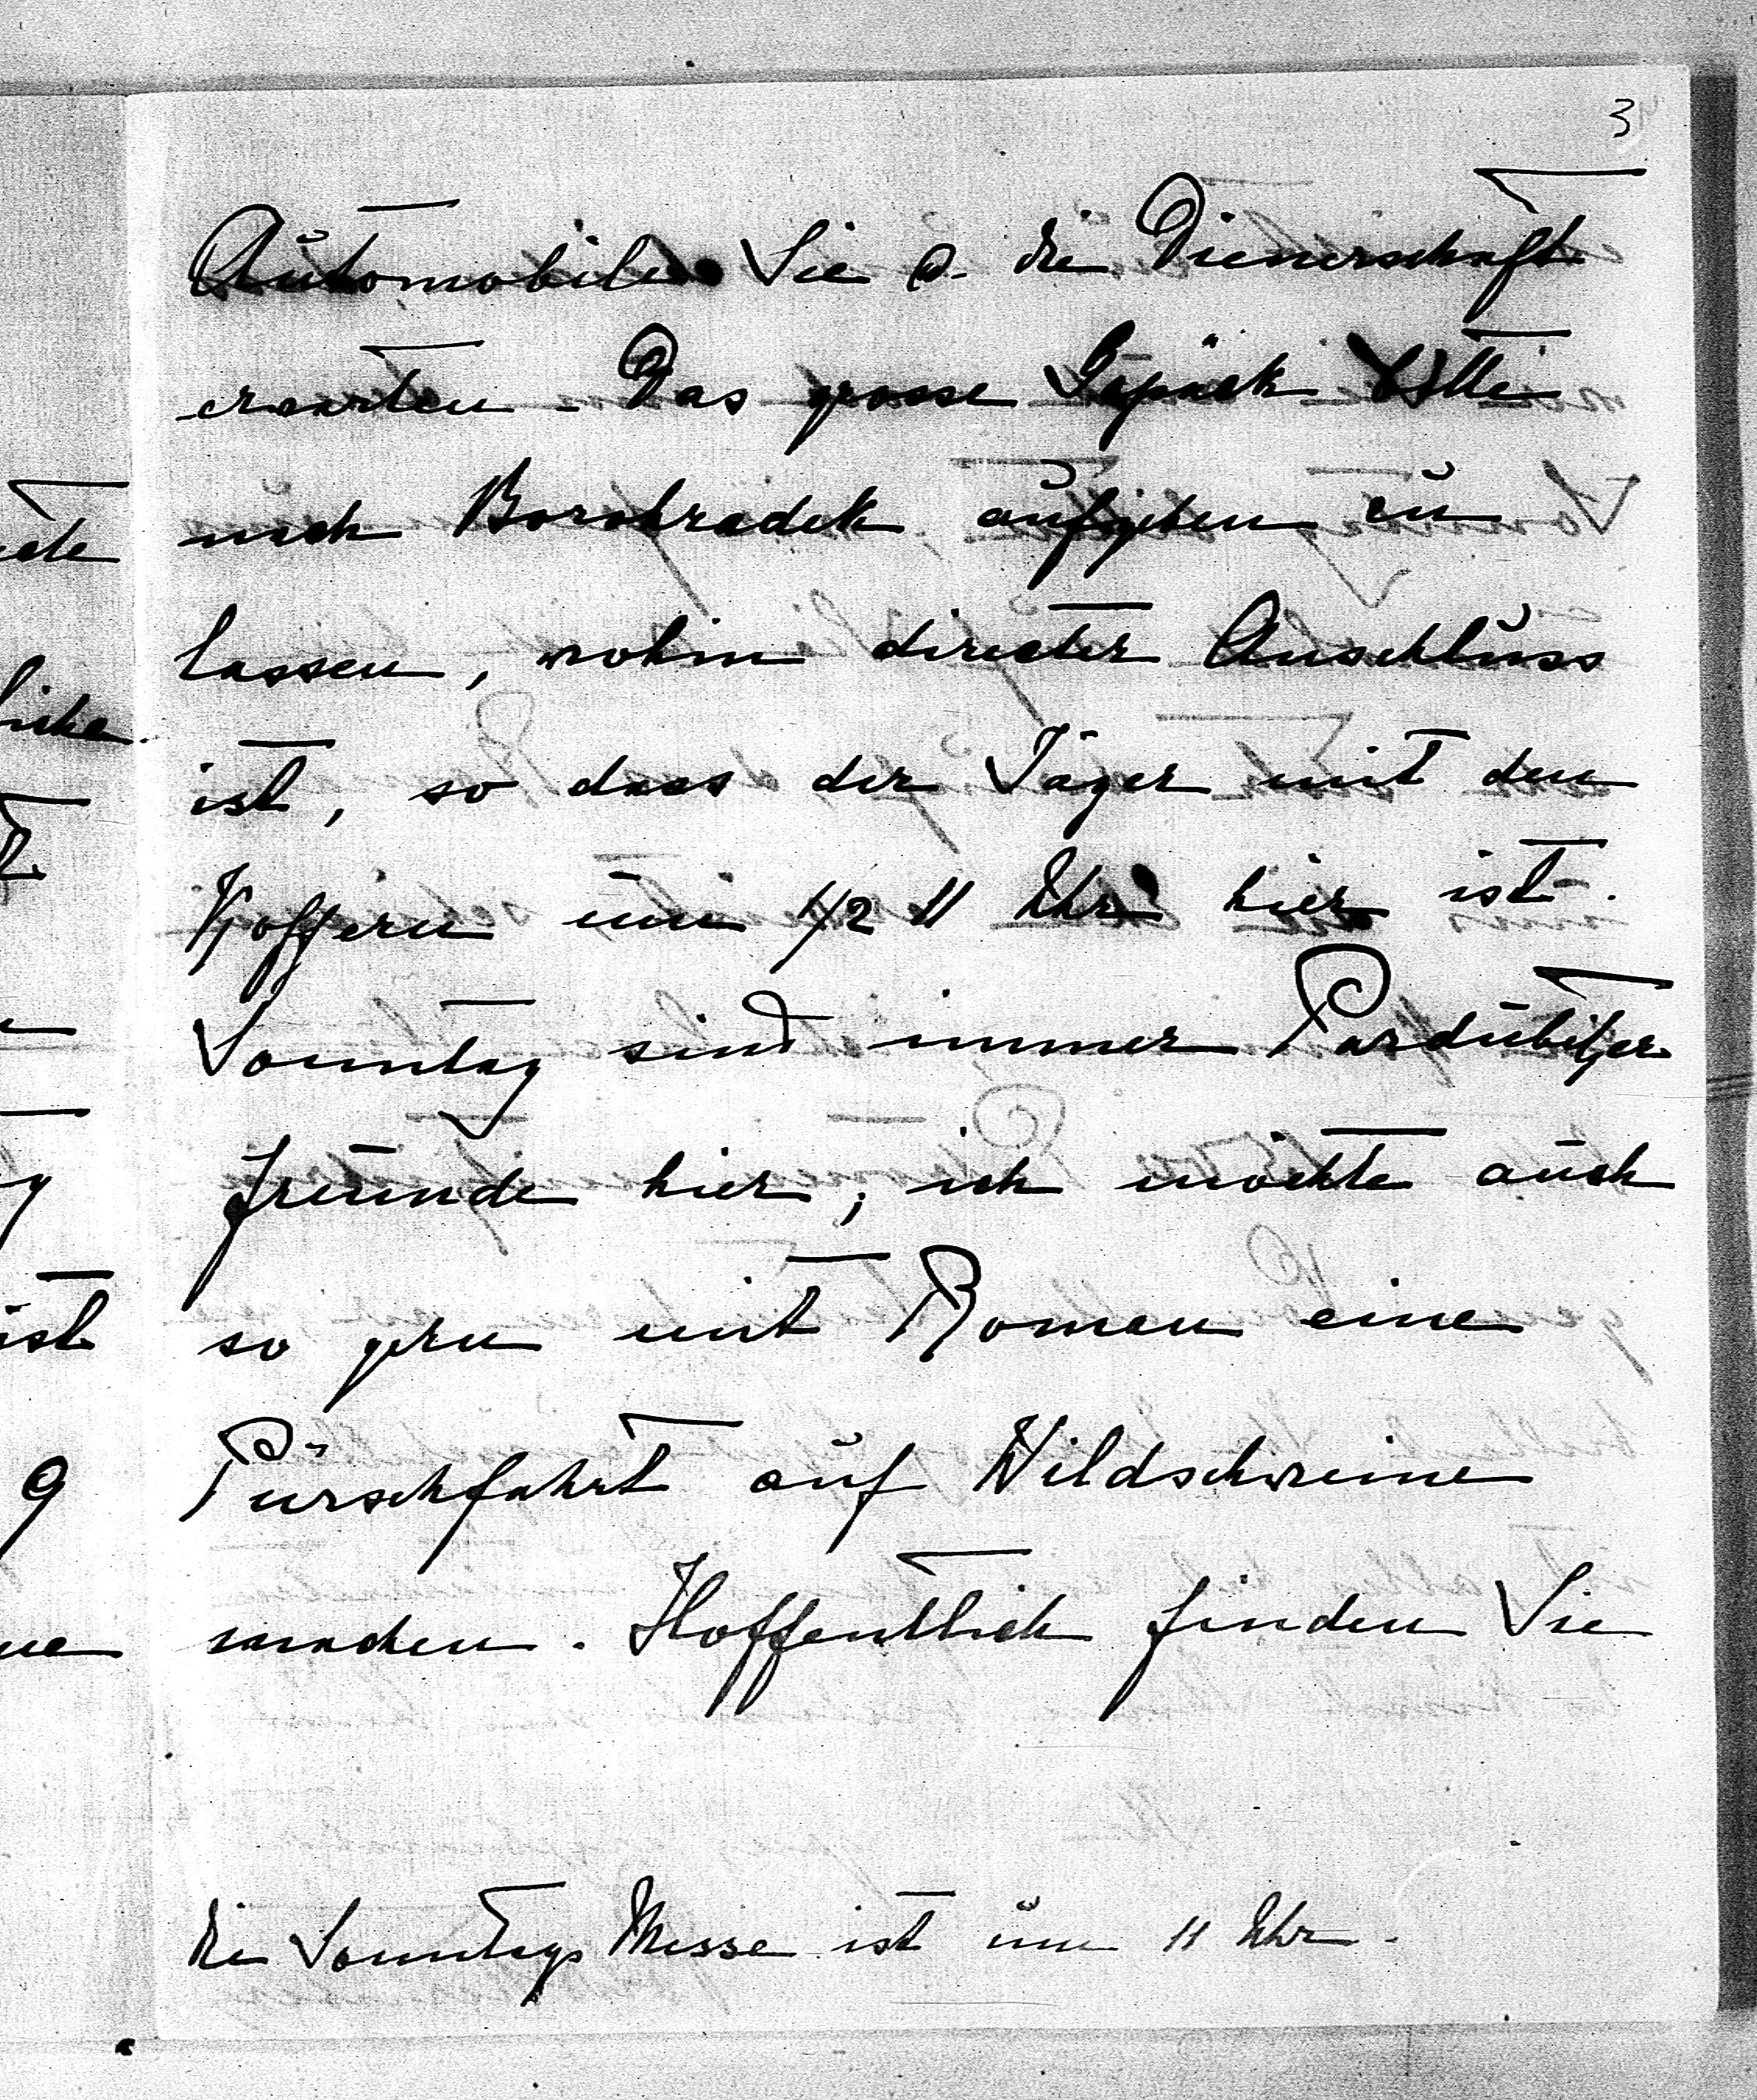 3
Automobile Sie u. die Dienerschaft
erwarten - Das grosse Gepäck bitte
nach Borohradek aufgeben zu
lassen, wohin directer Anschluss
ist, so dass der Jäger mit den
Koffern um 1/2 11 Uhr hier ist.
Sonntag sind immer Pardubitzer
freunde hier, ich möchte auch
so gern mit Roman eine
Pürschfahrt auf Wildschweine
machen. Hoffentlich finden Sie
die Sonntags Messe ist um 11 Uhr.